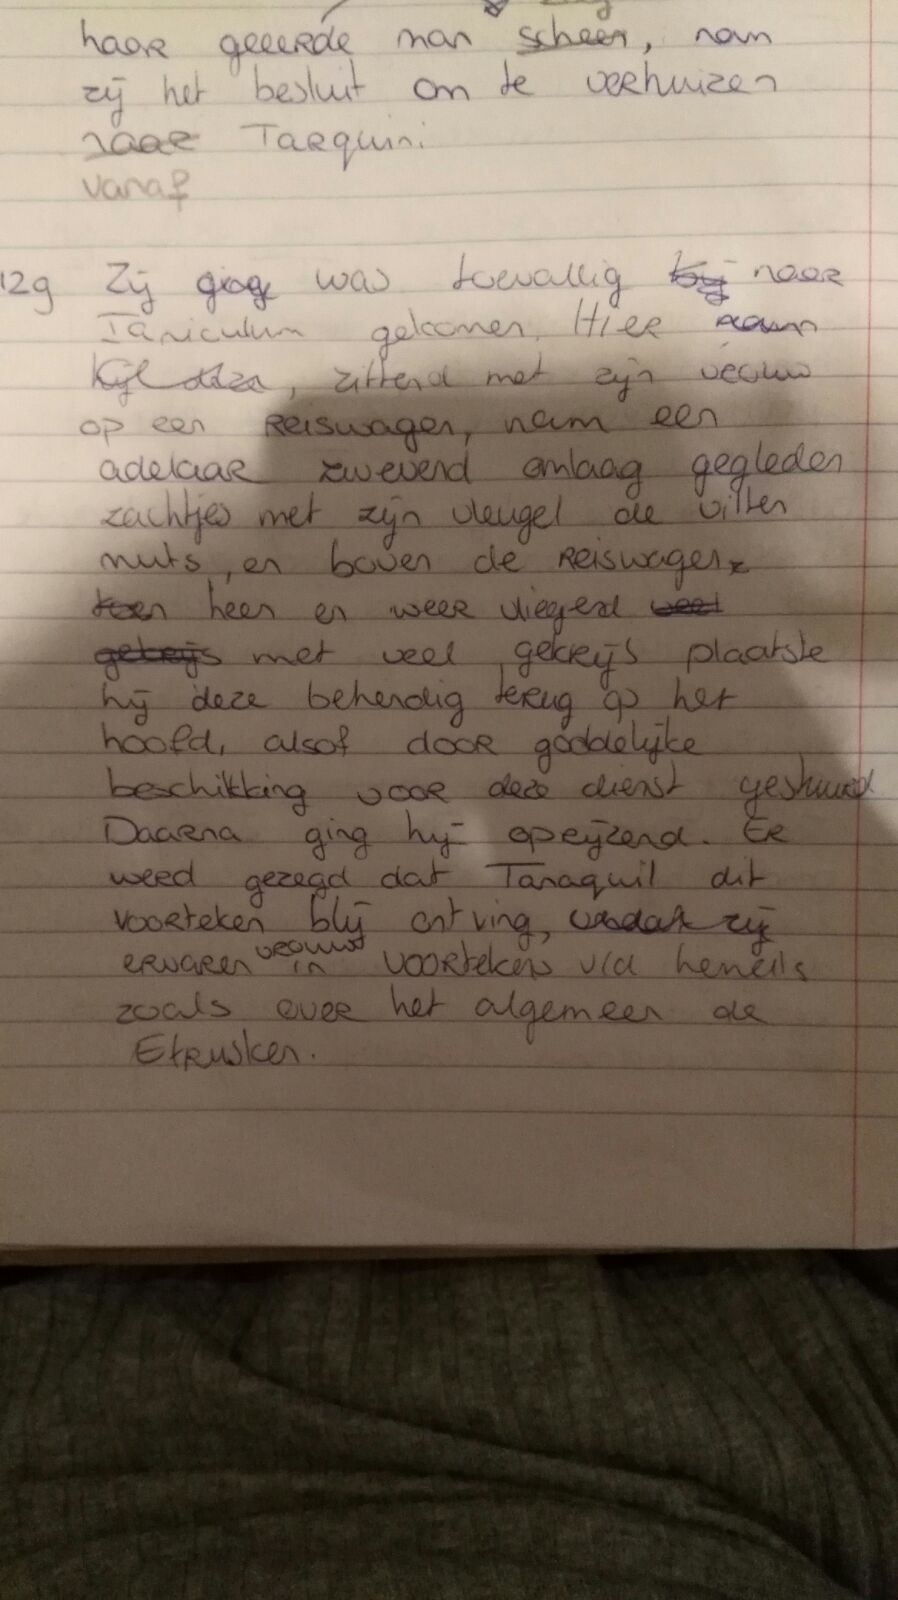 haar geëerde man scheen, nam
zij het besluit om te verhuizen
naar Tarquini.
vanaf
12g Zij was toevallig naar
Ianiculum gekomen. Hier
, zittend met zijn vrouw
op een reiswagen, nam een
adelaar zwevend omlaag gegleden
zachtjes met zijn vleugel de vilten
muts, en boven de reiswagen
heen en weer vliegend
met veel gekrijs plaatste
hij deze behendig terug op het
hoofd, alsof door goddelijke
beschikking voor deze dienst gestuurd
Daarna ging hij oprijzend. Er
werd gezegd dat Tanaquil dit
voorteken blij ontving,
ervaren vrouw in voortekens v/d hemels
zoals over het algemeen de
Etrusken.